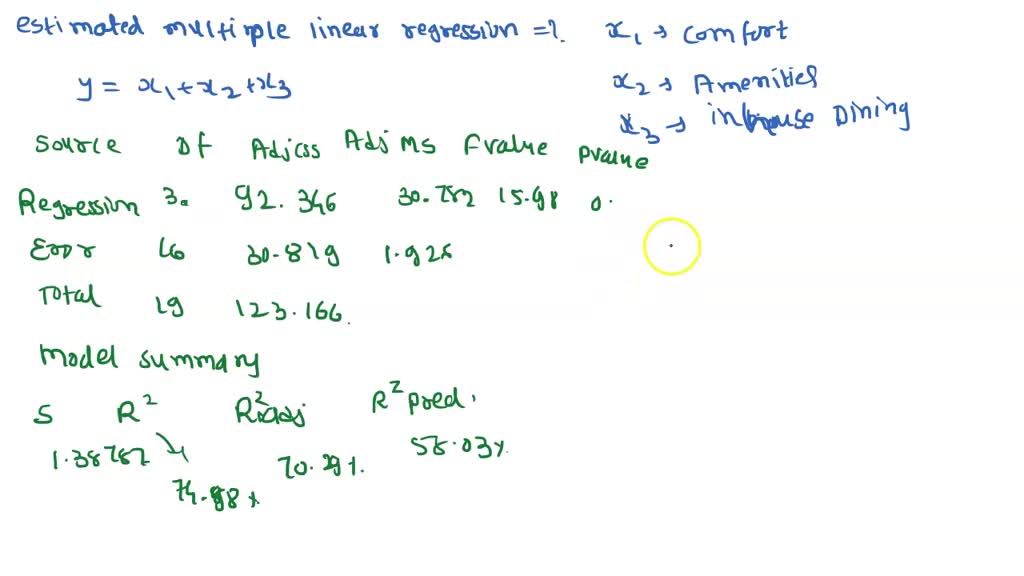 estimated multiple linear regression = ?. x1 → comfort
y = x1 + x2 + x3 x2 → Amenities
x3 → inhouse Dining
Source Df Adj SS Adj MS F value P value
Regression 3. 92.346 30.782 15.98 0.
Error 16 30.819 1.926
Total 19 123.166.
Model summary
S R² R² adj R² pred.
1.38787 74.98% 70.29%. 58.03%.